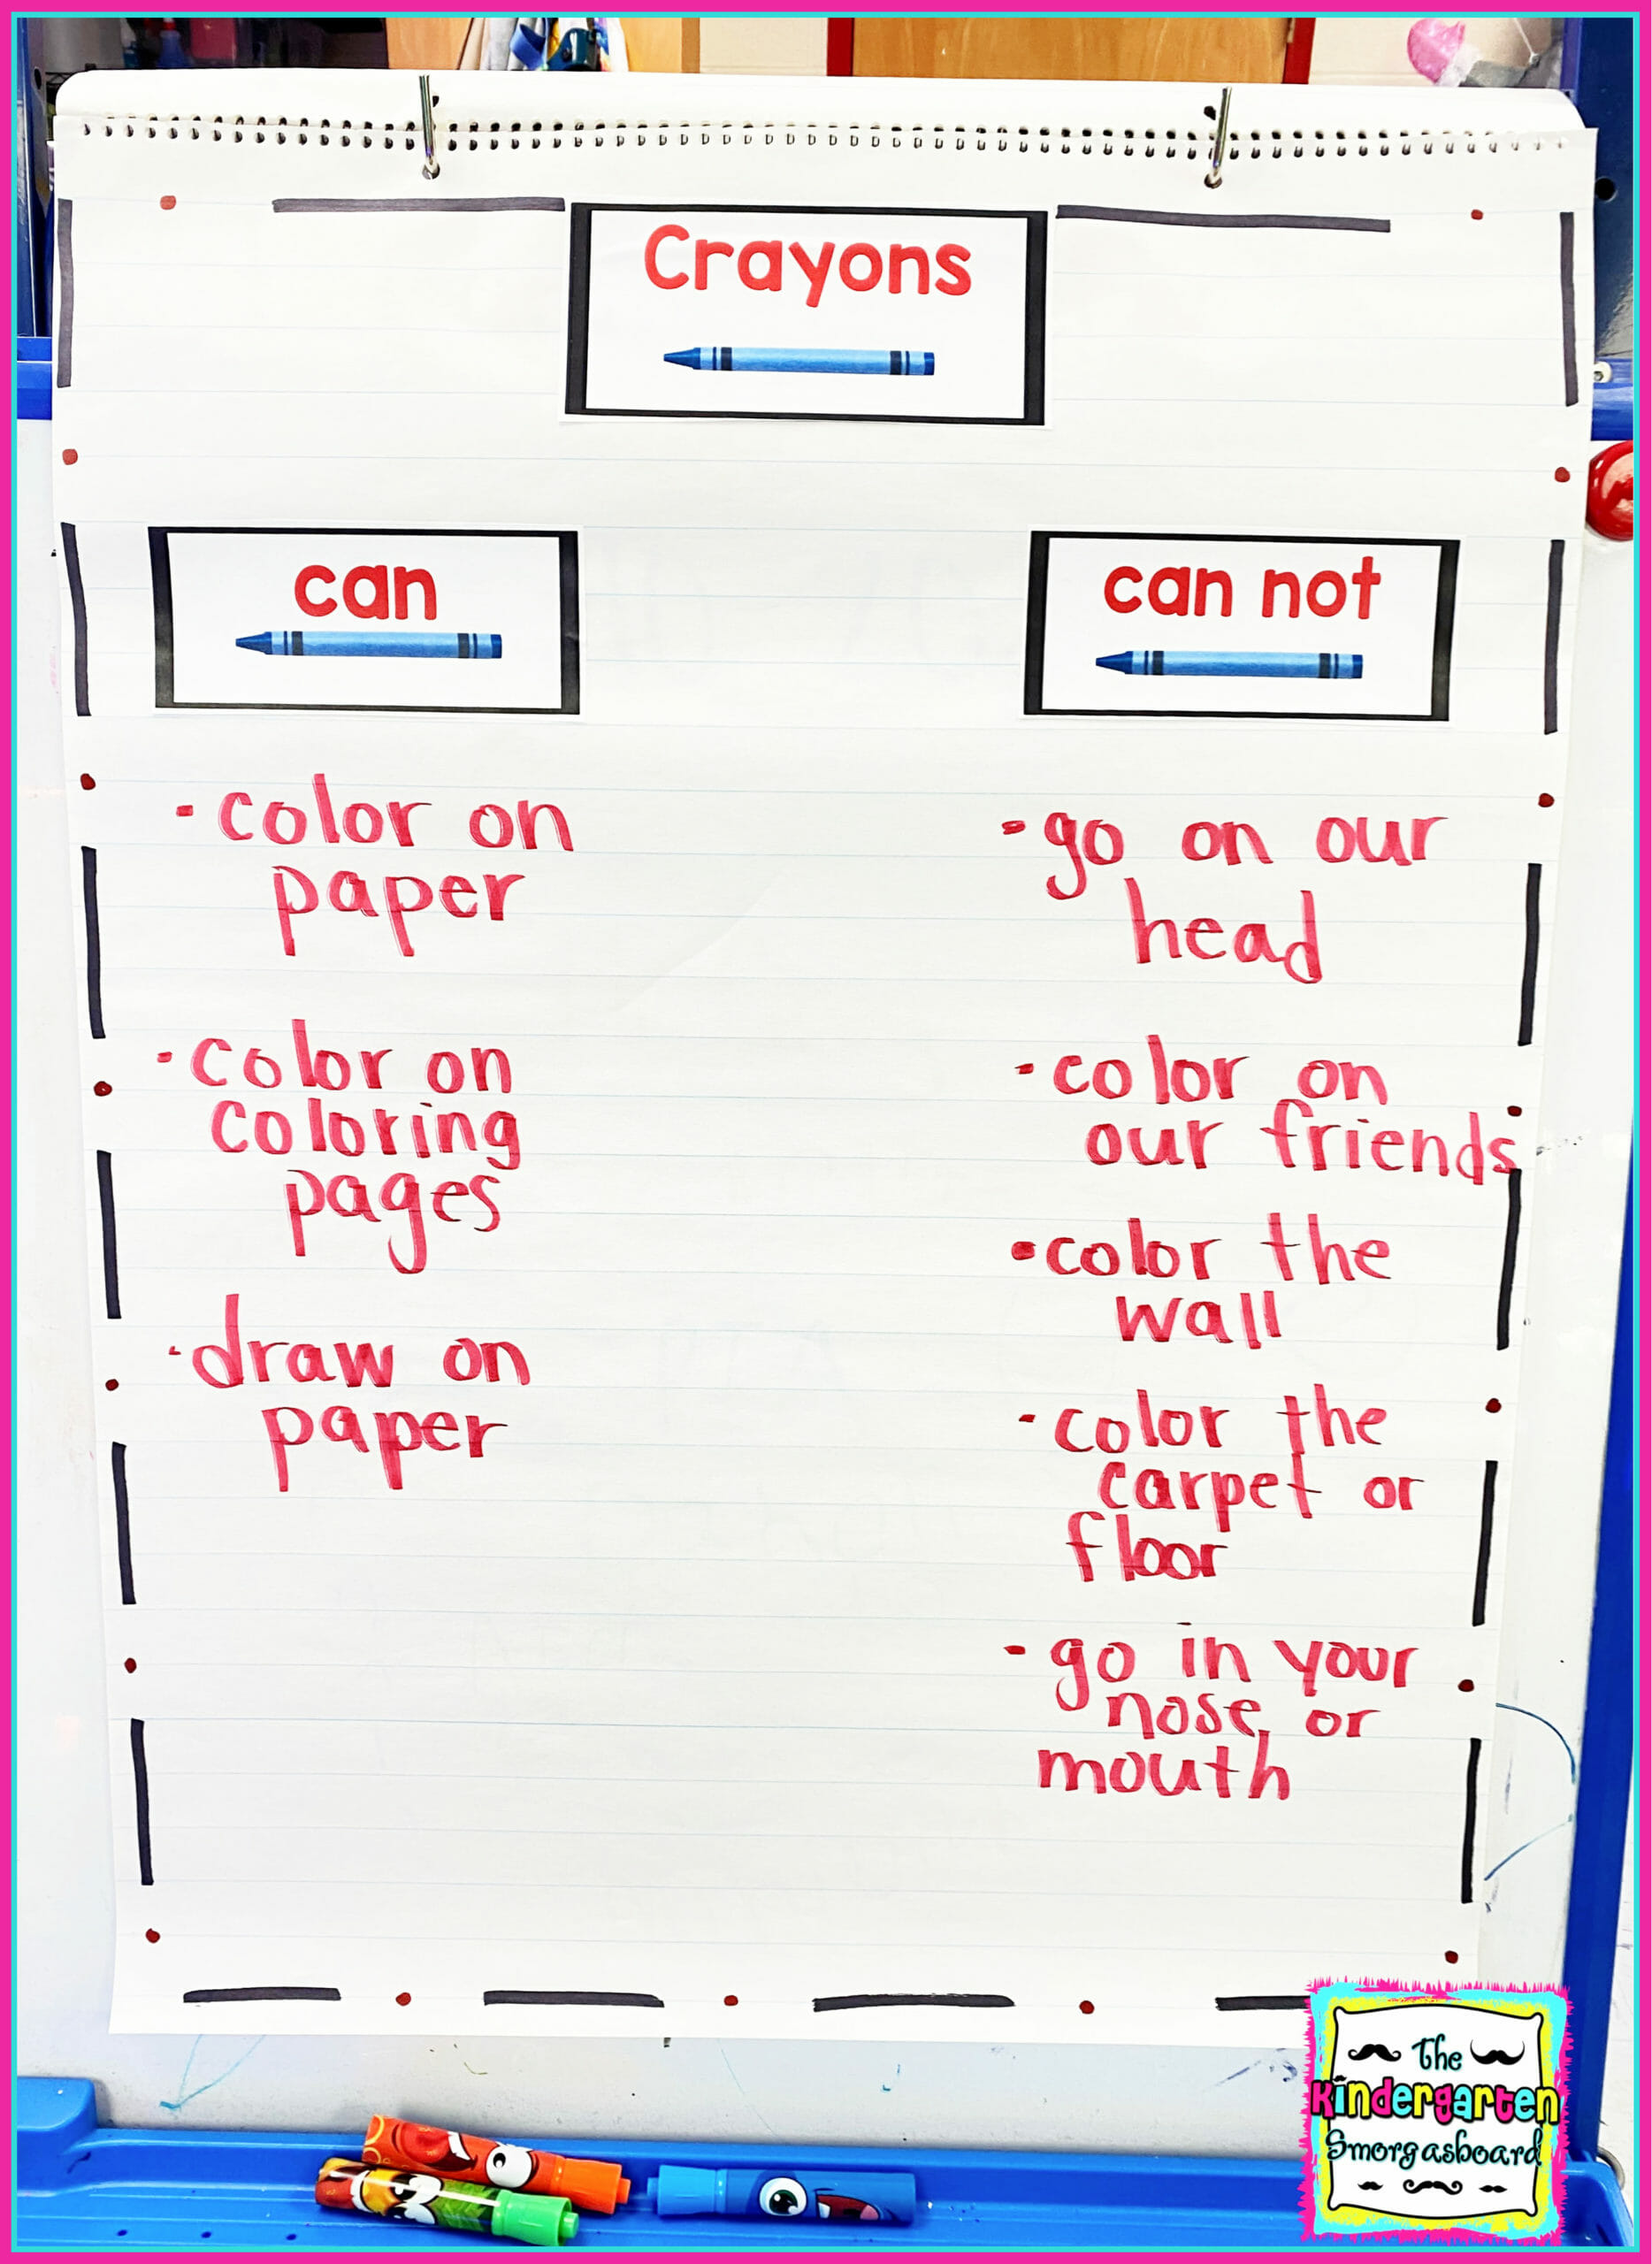 Crayons
can
- color on
paper
- color on
coloring
pages
- draw on
paper
can not
- go on our
head
- color on
our friends
• color the
wall
- color the
carpet or
floor
- go in your
nose or
mouth
The
Kindergarten
Smorgasboard